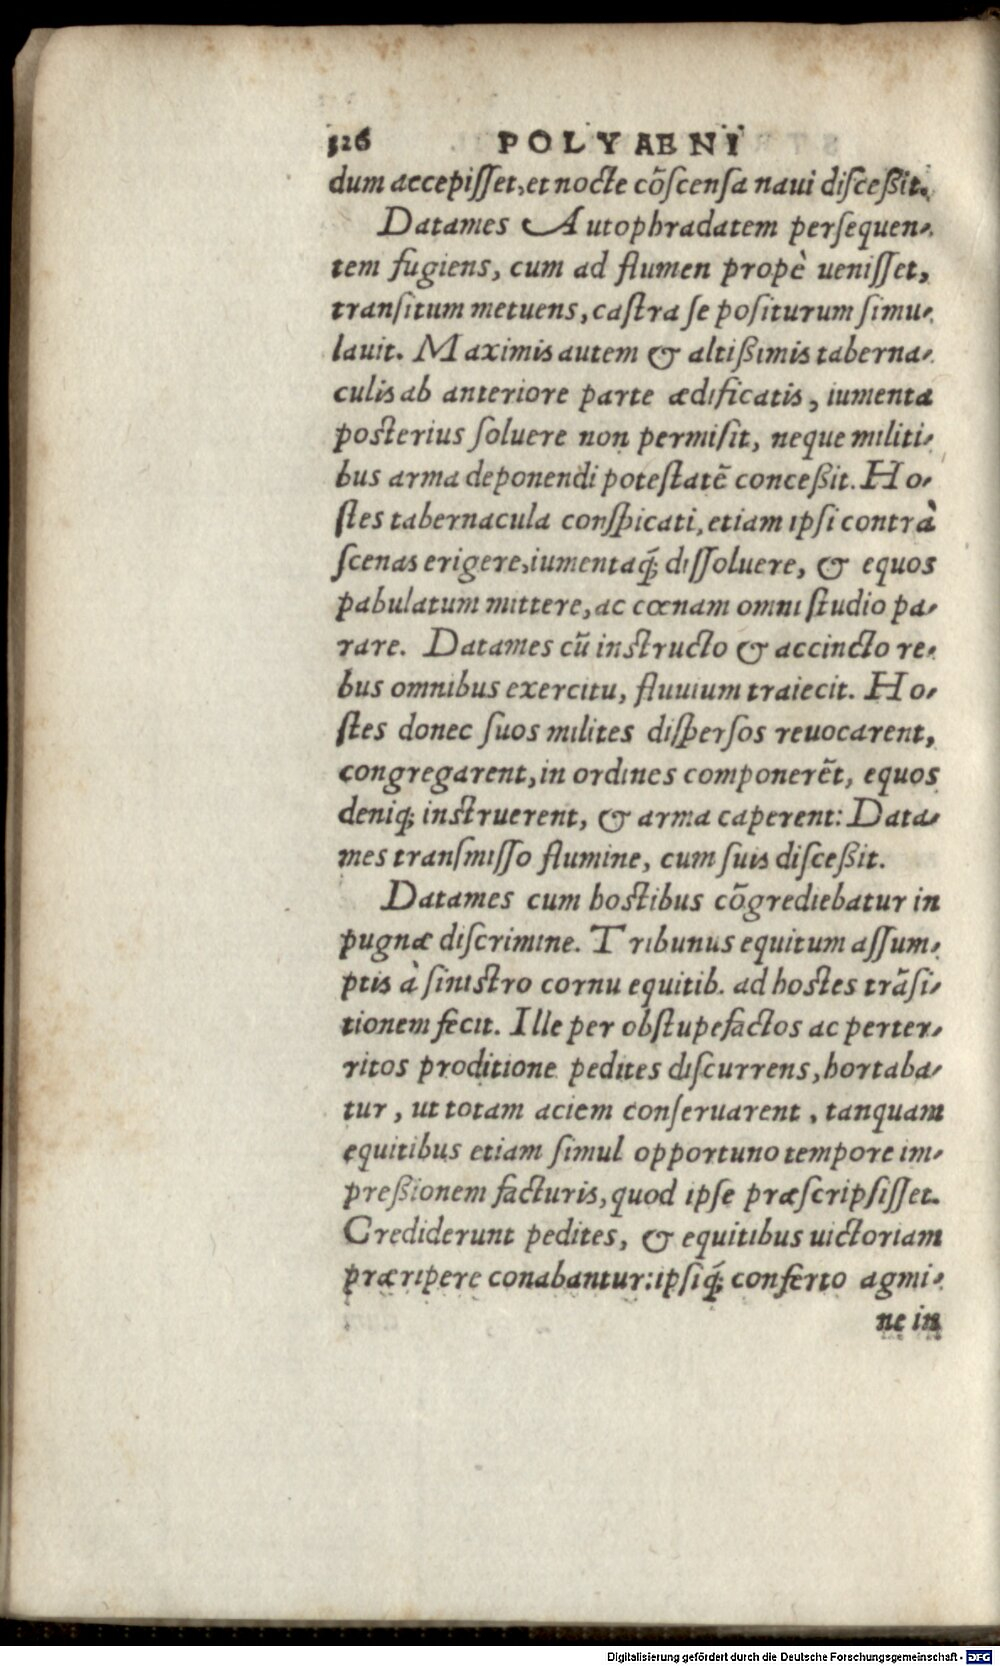 326 POLYAENI
dum accepiſſet, et nocte cõſcenſa naui diſceßit.
Datames Autophradatem perſequen-
tem fugiens, cum ad flumen propè ueniſſet,
tranſitum metuens, caſtra ſe poſiturum ſimu-
lauit. Maximis autem & altißimis taberna-
culis ab anteriore parte ædificatis, iumenta
posterius ſoluere non permiſit, neque militi-
bus arma deponendi poteſtatẽ conceßit. Ho-
ſtes tabernacula conſpicati, etiam ipſi contrà
ſcenas erigere, iumentaq́; diſſoluere, & equos
pabulatum mittere, ac cœnam omni ſtudio pa-
rare. Datames cũ instructo & accincto re-
bus omnibus exercitu, fluuium traiecit. Ho-
ſtes donec ſuos milites diſperſos reuocarent,
congregarent, in ordines componerẽt, equos
deniq; instruerent, & arma caperent: Data-
mes tranſmiſſo flumine, cum ſuis diſceßit.
Datames cum hostibus cõgrediebatur in
pugnæ diſcrimine. Tribunus equitum aſſum-
ptis à ſinistro cornu equitib. ad hostes trãſi-
tionem fecit. Ille per obſtupefactos ac perter-
ritos proditione pedites diſcurrens, hortaba-
tur, ut totam aciem conſeruarent, tanquam
equitibus etiam ſimul opportuno tempore im-
preßionem facturis, quod ipſe præſcripſiſſet.
Crediderunt pedites, & equitibus uictoriam
præripere conabantur: ipſiq́; conferto agmi-
ne in
Digitalisierung gefördert durch die Deutsche Forschungsgemeinschaft - DFG